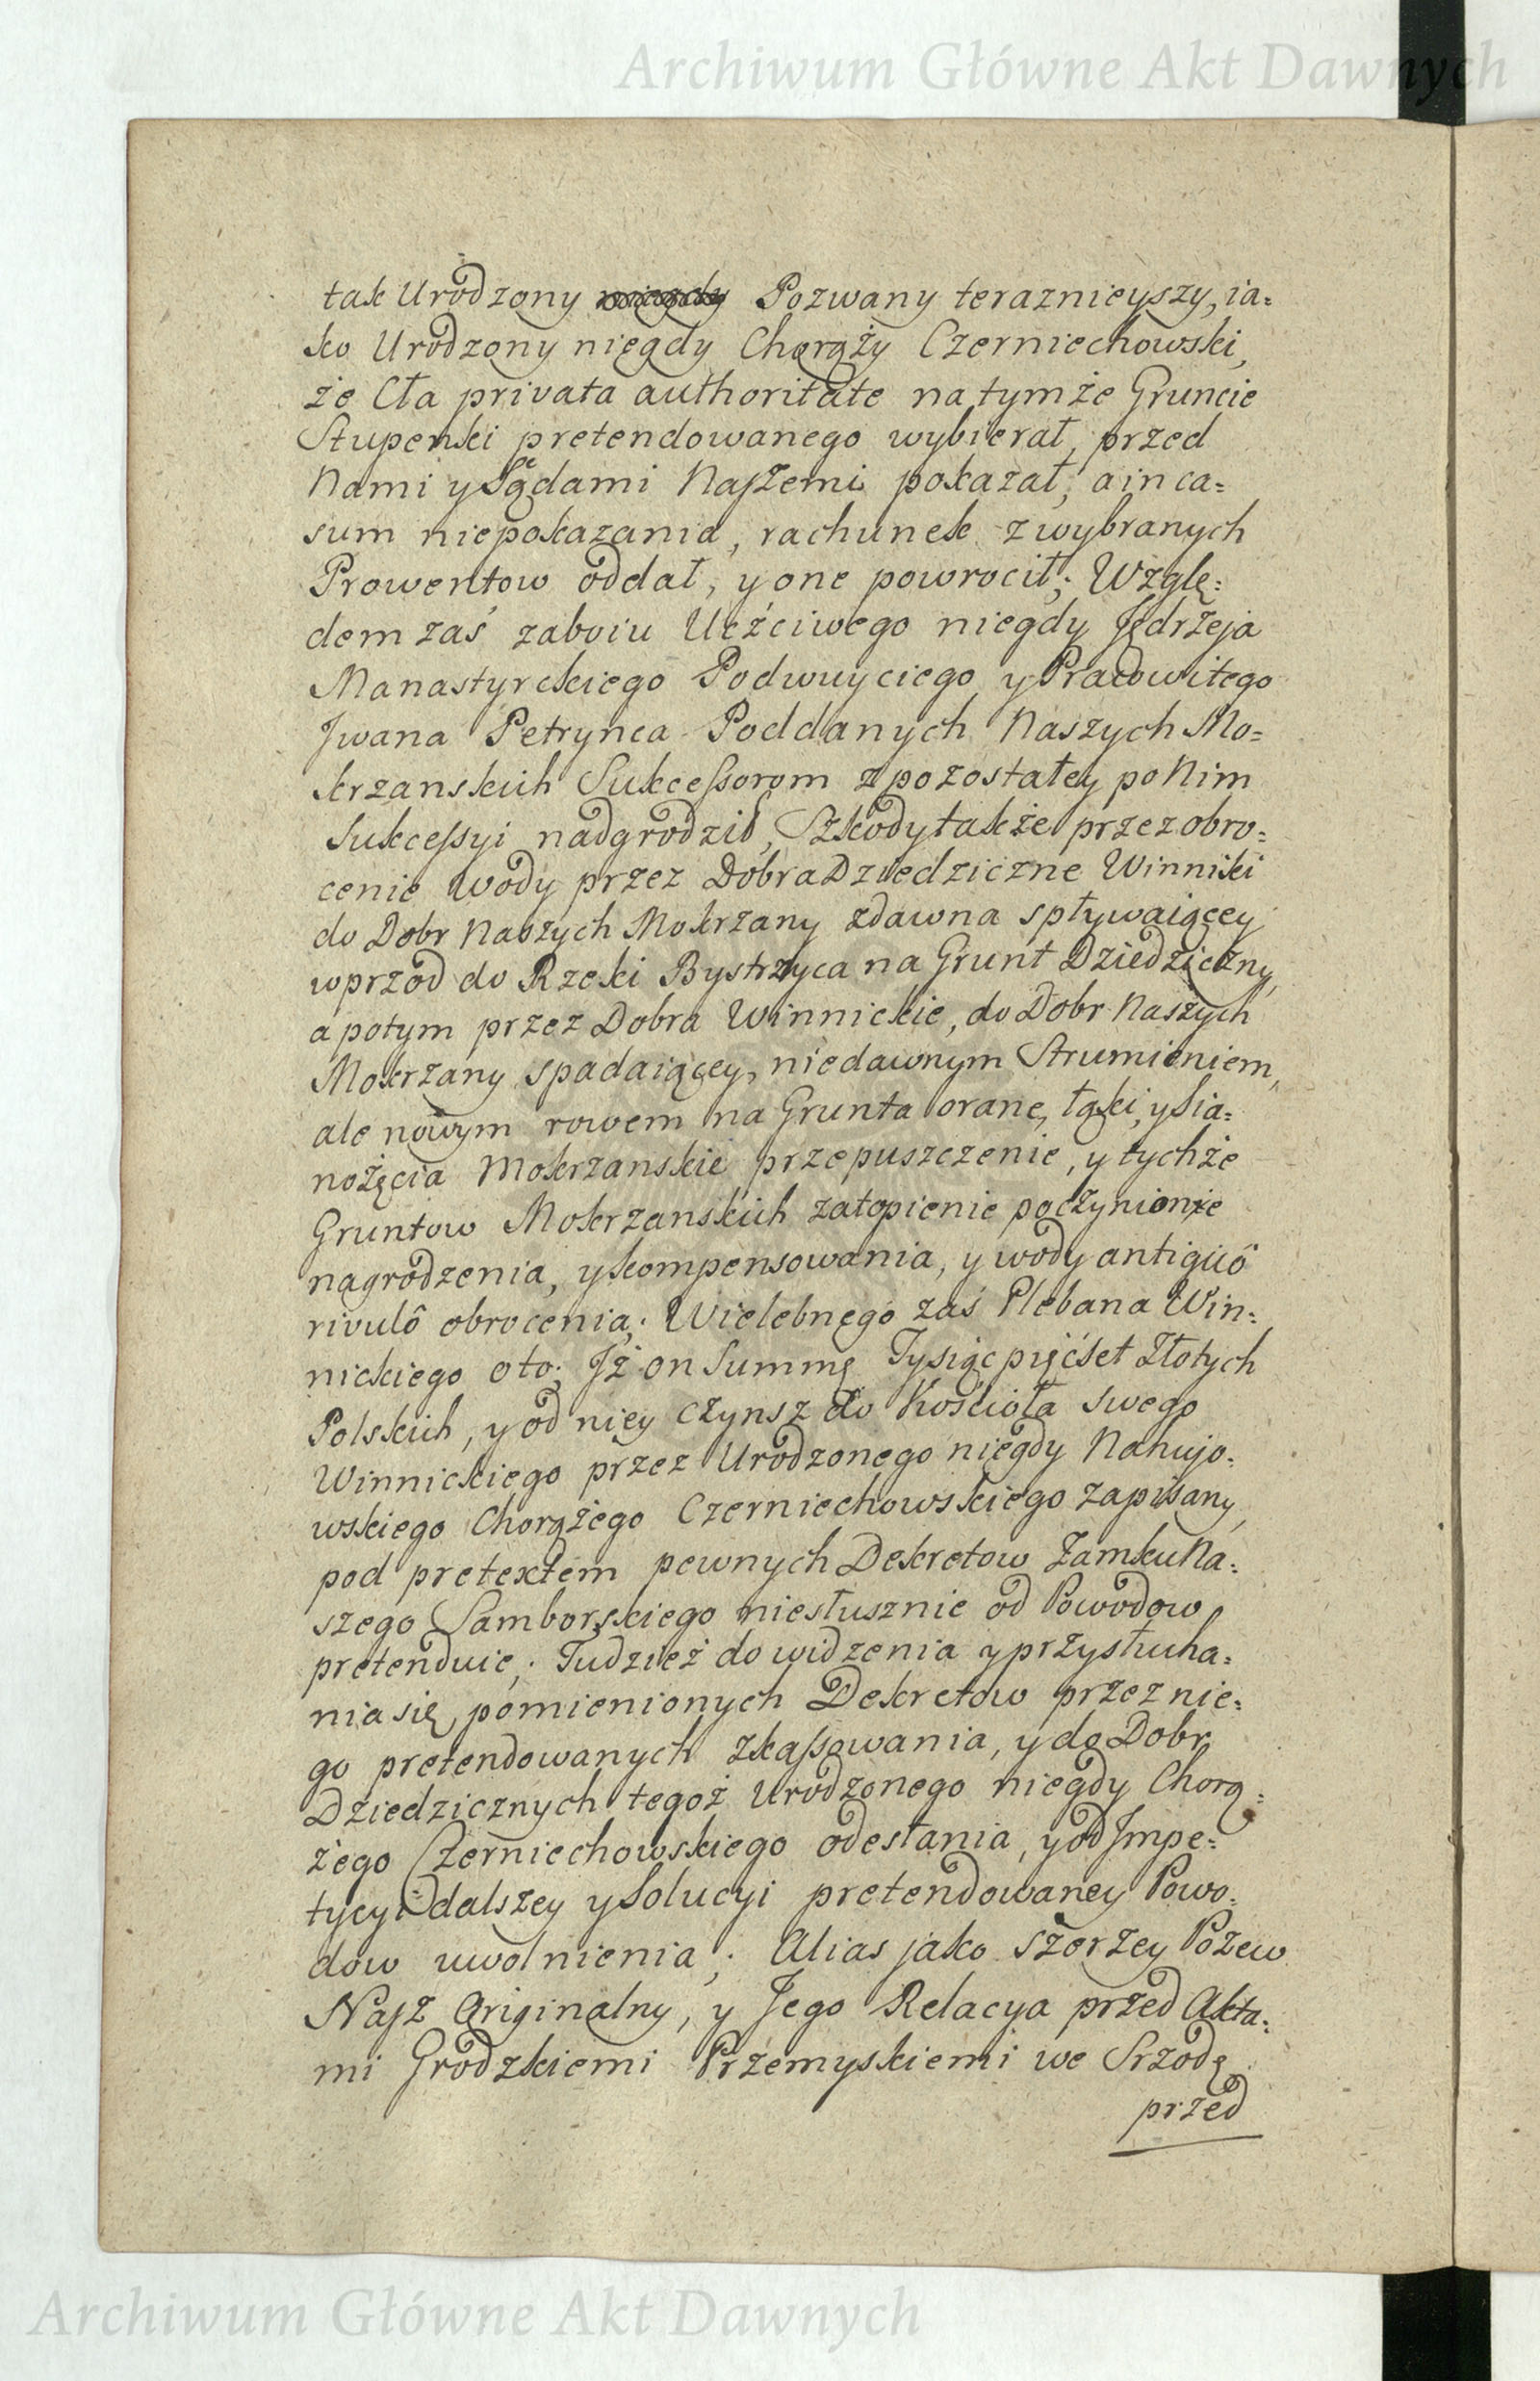 Archiwum Główne Akt Dawnych
tak Urodzony niegdy Pozwany teraznieyszy, ia=
ko Urodzony niegdy Chorąży Czerniechowski,
że Cła privata authoritate na tymże Gruncie
Stupenki pretendowanego wybierał, przed
Nami y Sądami Naszemi pokazał, a in ca=
sum niepokazania, rachunek z wybranych
Prowentow oddał, y one powrocił; Wzglę=
dem zaś zaboiu Uczciwego niegdy Jędrzeja
Manastyrckiego Podwuyciego y Pracowitego
Jwana Petrynca Poddanych Naszych Mo=
krzanskich Sukcessorom z pozostałey po Nim
Sukcessyi nadgrodził, Szkody także przez obro=
cenie wody przez Dobra Dziedziczne Winniki
do Dobr Naszych Mokrzany zdawna spływaiącey
wprzod do Rzeki Bystrzyca na Grunt Dziedziczny,
a potym przez Dobra Winnickie, do Dobr Naszych
Mokrzany spadaiącey, niedawnym Strumieniem,
ale nowym rowem na Grunta orane, łąki, y Sia=
nożęcia Mokrzanskie przepuszczenie, y tychże
Gruntow Mokrzanskich zatopienie poczynione
nagrodzenia, y kompensowania, y wody antiquô
rivulô obrocenia; Wielebnego zaś Plebana Win=
nickiego oto; Jż on Summę Tysiąc pięćset Złotych
Polskich, y od niey czynsz do Kościoła swego
Winnickiego przez Urodzonego niegdy Nahujo=
wskiego Chorążego Czerniechowskiego zapisany,
pod pretextem pewnych Dekretow Zamku Na=
szego Samborskiego niesłusznie od Powodow
pretenduie; Tudzież do widzenia y przysłucha=
nia się pomienionych Dekretow przez nie=
go pretendowanych zkassowania, y do Dobr
Dziedzicznych tegoż Urodzonego niegdy Chorą=
żego Czerniechowskiego odesłania, y od Jmpe=
tycyi dalszey y Solucyi pretendowaney Powo=
dow uwolnienia; Alias jako szerzey Pozew
Nasz Originalny, y Jego Relacya przed Akta=
mi Grodzkiemi Przemyskiemi we Srzodę
przed
Archiwum Główne Akt Dawnych